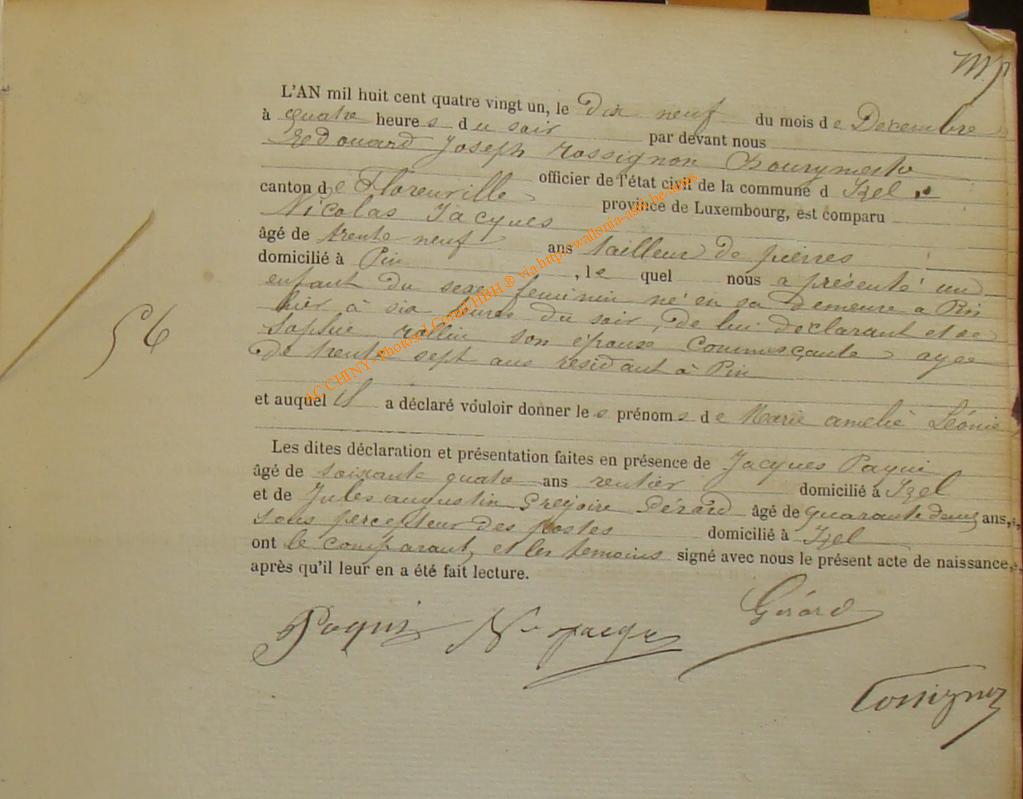 L'AN mil huit cent quatre vingt un, le Dix neuf du mois de Décembre
à quatre heures du soir par devant nous
Edouard Joseph Rossignon Bourgmestre
officier de l'état civil de la commune d Izel
canton de Florenville province de Luxembourg, est comparu
Nicolas Jacques
âgé de trente neuf ans tailleur de pierres
domicilié à Pin , le quel nous a présenté un
enfant du sexe feminin né en sa demeure a Pin
hier à six heures du soir, de lui declarant et de
Sophie Rollin son épouse agée
de trente sept ans residant à Pin
et auquel il a déclaré vouloir donner les prénoms de Marie amelie Léonie
Les dites déclaration et présentation faites en présence de Jacques Paquis
âgé de soixante quatre ans rentier domicilié à Izel
et de Jules augustin Grégoire Gérard âgé de quarante deux ans,
sous percepteur des postes domicilié à Izel
ont le comparant et les temoins signé avec nous le présent acte de naissance,
après qu'il leur en a été fait lecture.
56
Paquis Nas Jacques Gérard
Rossignon
AC CHINY - Photos J. Collet HBH ® via http://wallonia-asbl.be